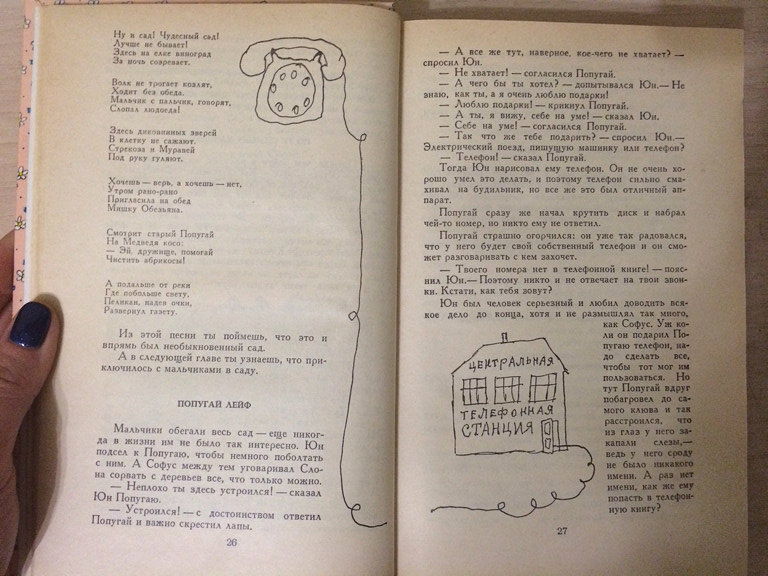 Ну и сад! Чудесный сад!
Лучше не бывает!
Здесь на елке виноград
За ночь созревает.
Волк не трогает козлят,
Ходит без обеда.
Мальчик с пальчик, говорят,
Слопал людоеда!
Здесь диковинных зверей
В клетку не сажают.
Стрекоза и Муравей
Под руку гуляют.
Хочешь — верь, а хочешь — нет,
Утром рано-рано
Пригласила на обед
Мишку Обезьяна.
Смотрит старый Попугай
На Медведя косо:
— Эй, дружище, помогай
Чистить абрикосы!
А подальше от реки
Где побольше свету,
Пеликан, надев очки,
Развернул газету.
Из этой песни ты поймешь, что это и
впрямь был необыкновенный сад.
А в следующей главе ты узнаешь, что при-
ключилось с мальчиками в саду.
ПОПУГАЙ ЛЕЙФ
Мальчики обегали весь сад — еще никог-
да в жизни им не было так интересно. Юн
подсел к Попугаю, чтобы немного поболтать
с ним. А Софус между тем уговаривал Сло-
на сорвать с деревьев все, что только можно.
— Неплохо ты здесь устроился! — сказал
Юн Попугаю.
— Устроился! — с достоинством ответил
Попугай и важно скрестил лапы.
26
— А все же тут, наверное, кое-чего не хватает? —
спросил Юн.
— Не хватает! — согласился Попугай.
— А чего бы ты хотел? — допытывался Юн.— Не
знаю, как ты, а я очень люблю подарки!
— Люблю подарки! — крикнул Попугай.
— А ты, я вижу, себе на уме! — сказал Юн.
— Себе на уме! — согласился Попугай.
— Так что же тебе подарить? — спросил Юн.—
Электрический поезд, пишущую машинку или телефон?
— Телефон! — сказал Попугай.
Тогда Юн нарисовал ему телефон. Он не очень хо-
рошо умел это делать, и поэтому телефон сильно сма-
хивал на будильник, но все же это был отличный аппа-
рат.
Попугай сразу же начал крутить диск и набрал
чей-то номер, но никто ему не ответил.
Попугай страшно огорчился: он уже так радовался,
что у него будет свой собственный телефон и он смо-
жет разговаривать с кем захочет.
— Твоего номера нет в телефонной книге! — пояс-
нил Юн.— Поэтому никто и не отвечает на твои звон-
ки. Кстати, как тебя зовут?
Юн был человек серьезный и любил доводить вся-
кое дело до конца, хотя и не размышлял так много,
как Софус. Уж ко-
ли он подарил По-
пугаю телефон, на-
до сделать все,
чтобы тот мог им
пользоваться. Но
тут Попугай вдруг
побагровел до са-
мого клюва и так
расстроился, что
из глаз у него за-
капали слезы,—
ведь у него сроду
не было никакого
имени. А раз нет
имени, как же ему
попасть в телефон-
ную книгу?
ЦЕНТРАЛЬНАЯ
ТЕЛЕФОННАЯ
СТАНЦИЯ
27